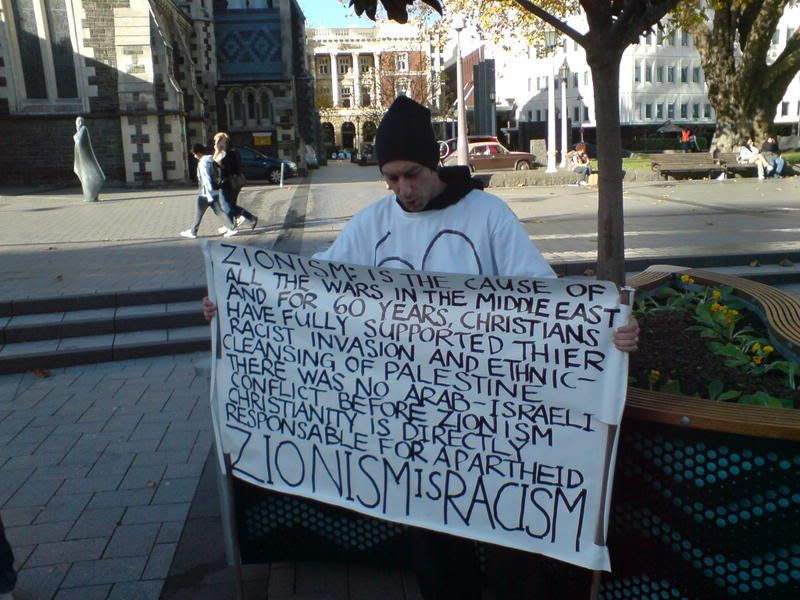 60
ZIONISM: IS THE CAUSE OF
ALL THE WARS IN THE MIDDLE EAST
AND FOR 60 YEARS, CHRISTIANS
HAVE FULLY SUPPORTED THIER
RACIST INVASION AND ETHNIC-
CLEANSING OF PALESTINE
THERE WAS NO ARAB-ISRAELI
CONFLICT BEFORE ZIONISM
CHRISTIANITY IS DIRECTLY
RESPONSABLE FOR APARTHEID
ZIONISM IS RACISM